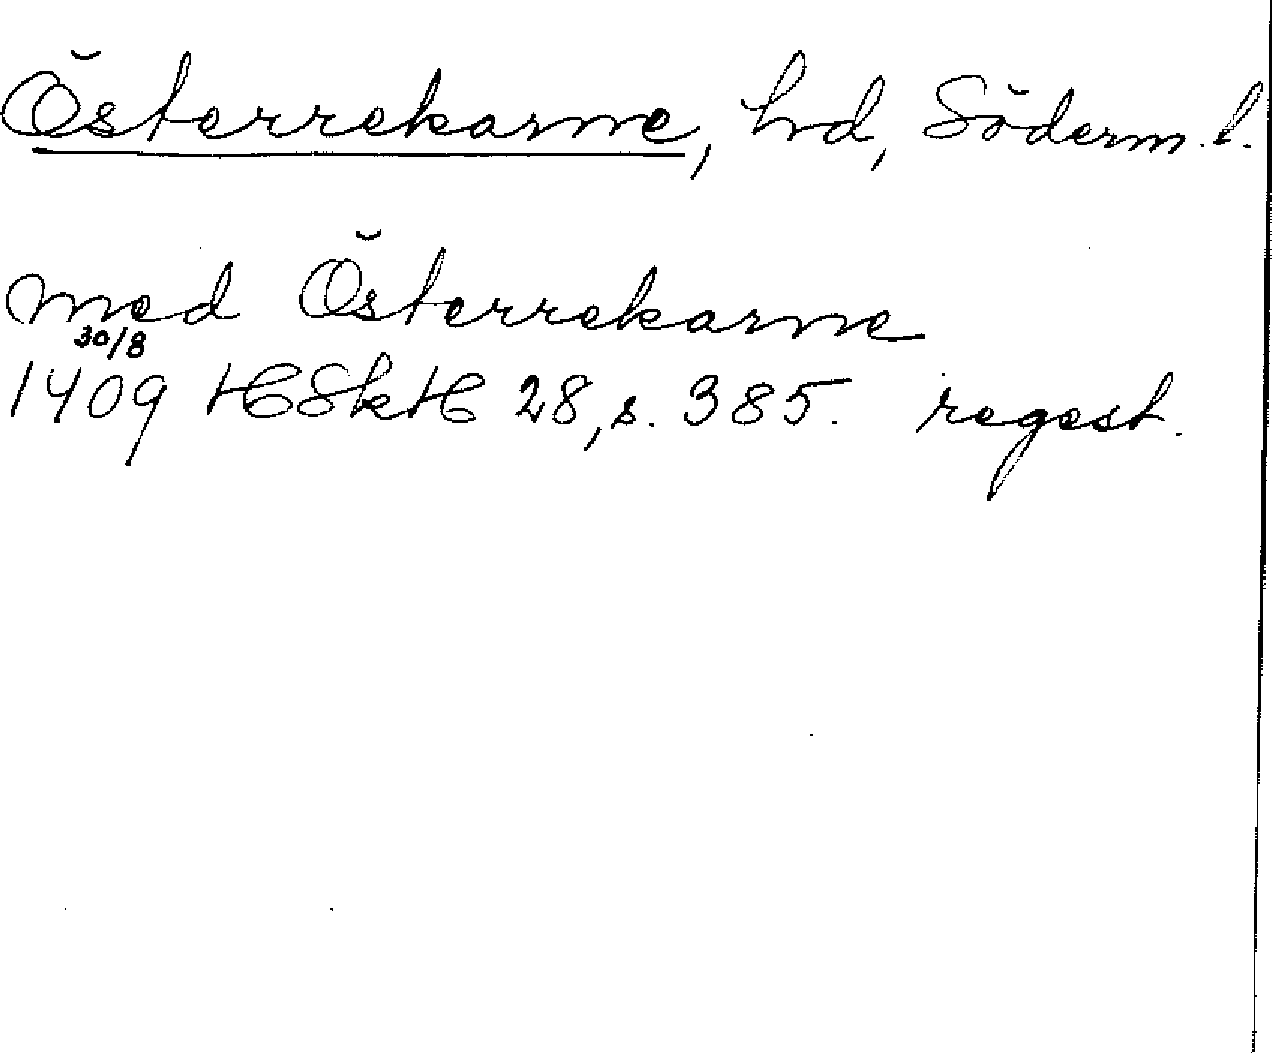 Österrekarne, hd, Söderm. l.
med Österrekarne
30/8
1409 HSkH 28, s. 385. regest.